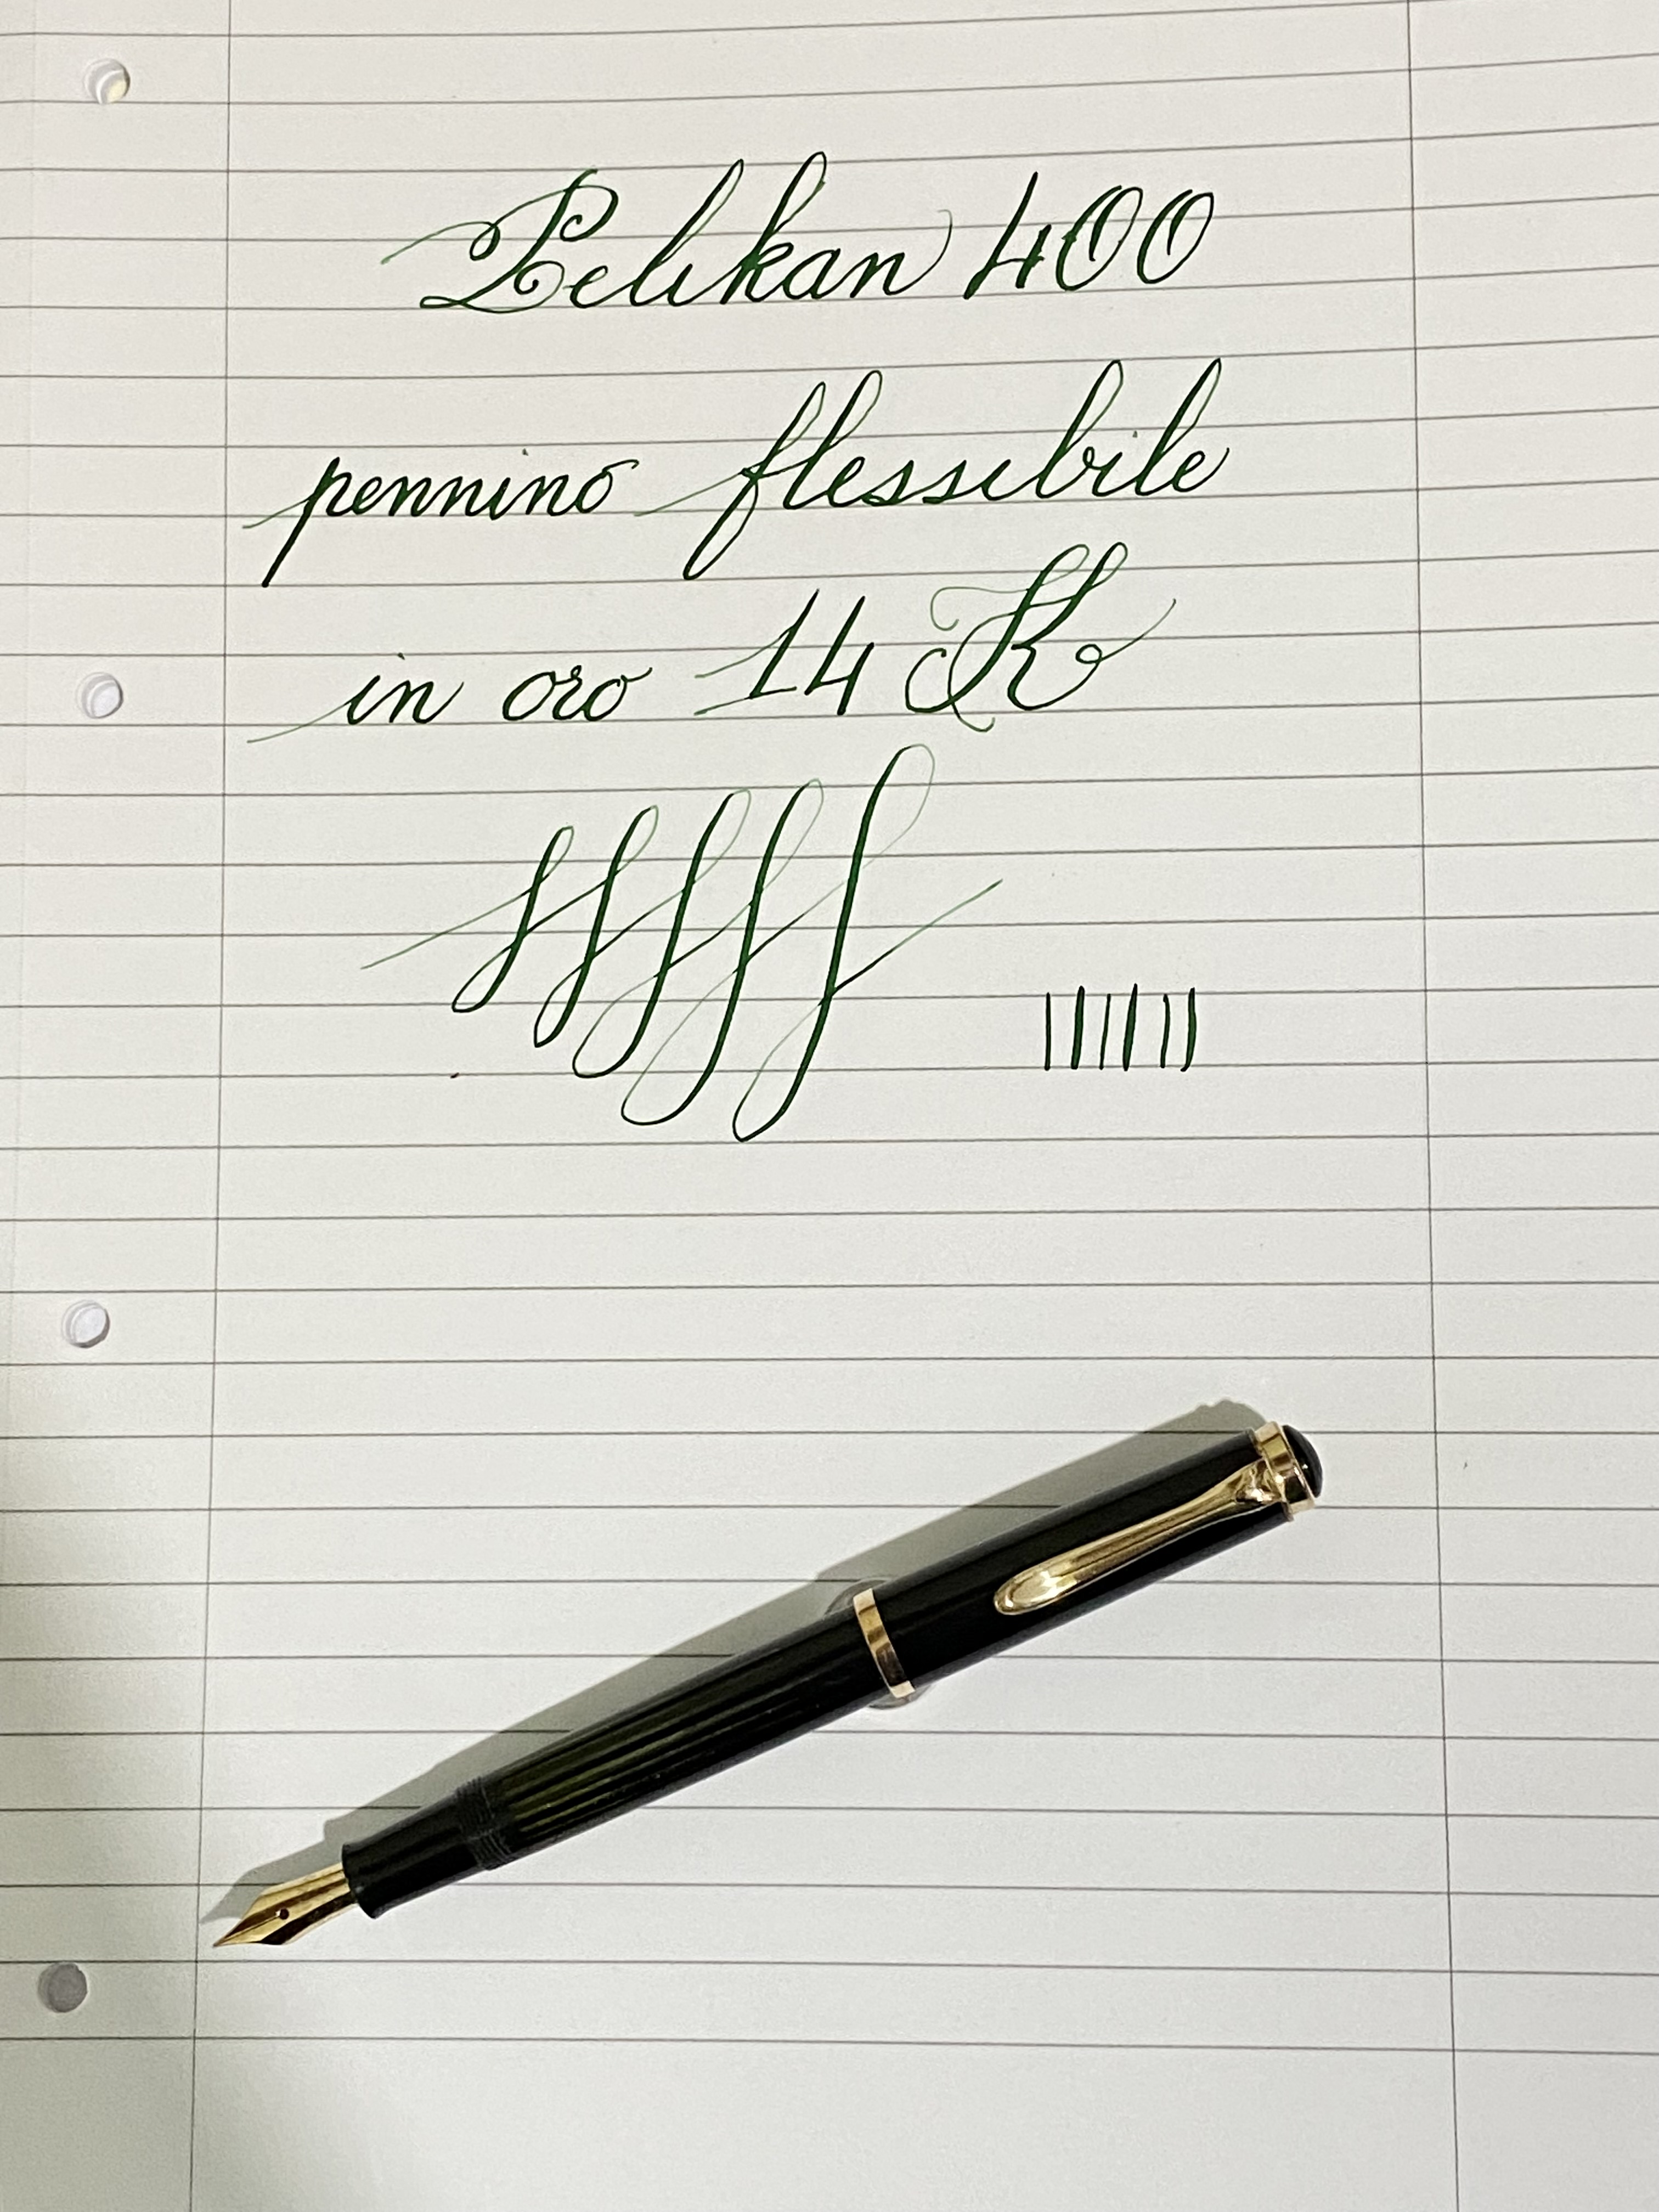 Pelikan 400
pennino flessibile
in oro 14 K